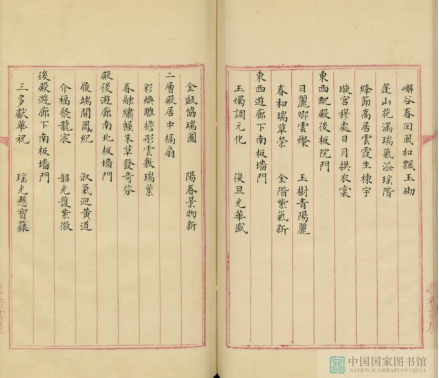 嶰谷春回風和飄玉砌
蓬山花滿瑞氣溢瑤階
絳節高居雲霞生棟宇
璇宮穆處日月煥衣裳
東西配殿後板院門
日麗卿雲燦 玉樹青陽麗
春和瑞草榮 金階紫氣新
東西遊廊下南板墻門
玉燭調元化 復旦光華盛
金甌協瑞圖 陽春景物新
二層殿居中槅扇
彩煥雕檐彤雲歌瑞葉
春融繡幄朱草發奇芬
殿後遊廊下南北板墻門
殿端開鳳紀 淑氣迎黃道
介福聚龍宸 韶光護紫微
後殿遊廊下南板墻門
三多獻華祝 瑤光懸寶籙
中国国家图书馆
NATIONAL LIBRARY OF CHINA